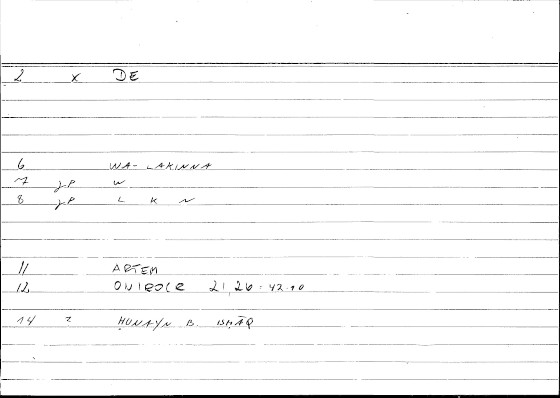 2 x DE
6 WA-LAKINNA
7 gP W
8 gP L K N
11 ARTEM
12 ONIROCR 21,26 : 42.10
14 2 ḤUNAYN B. ISḤĀQ